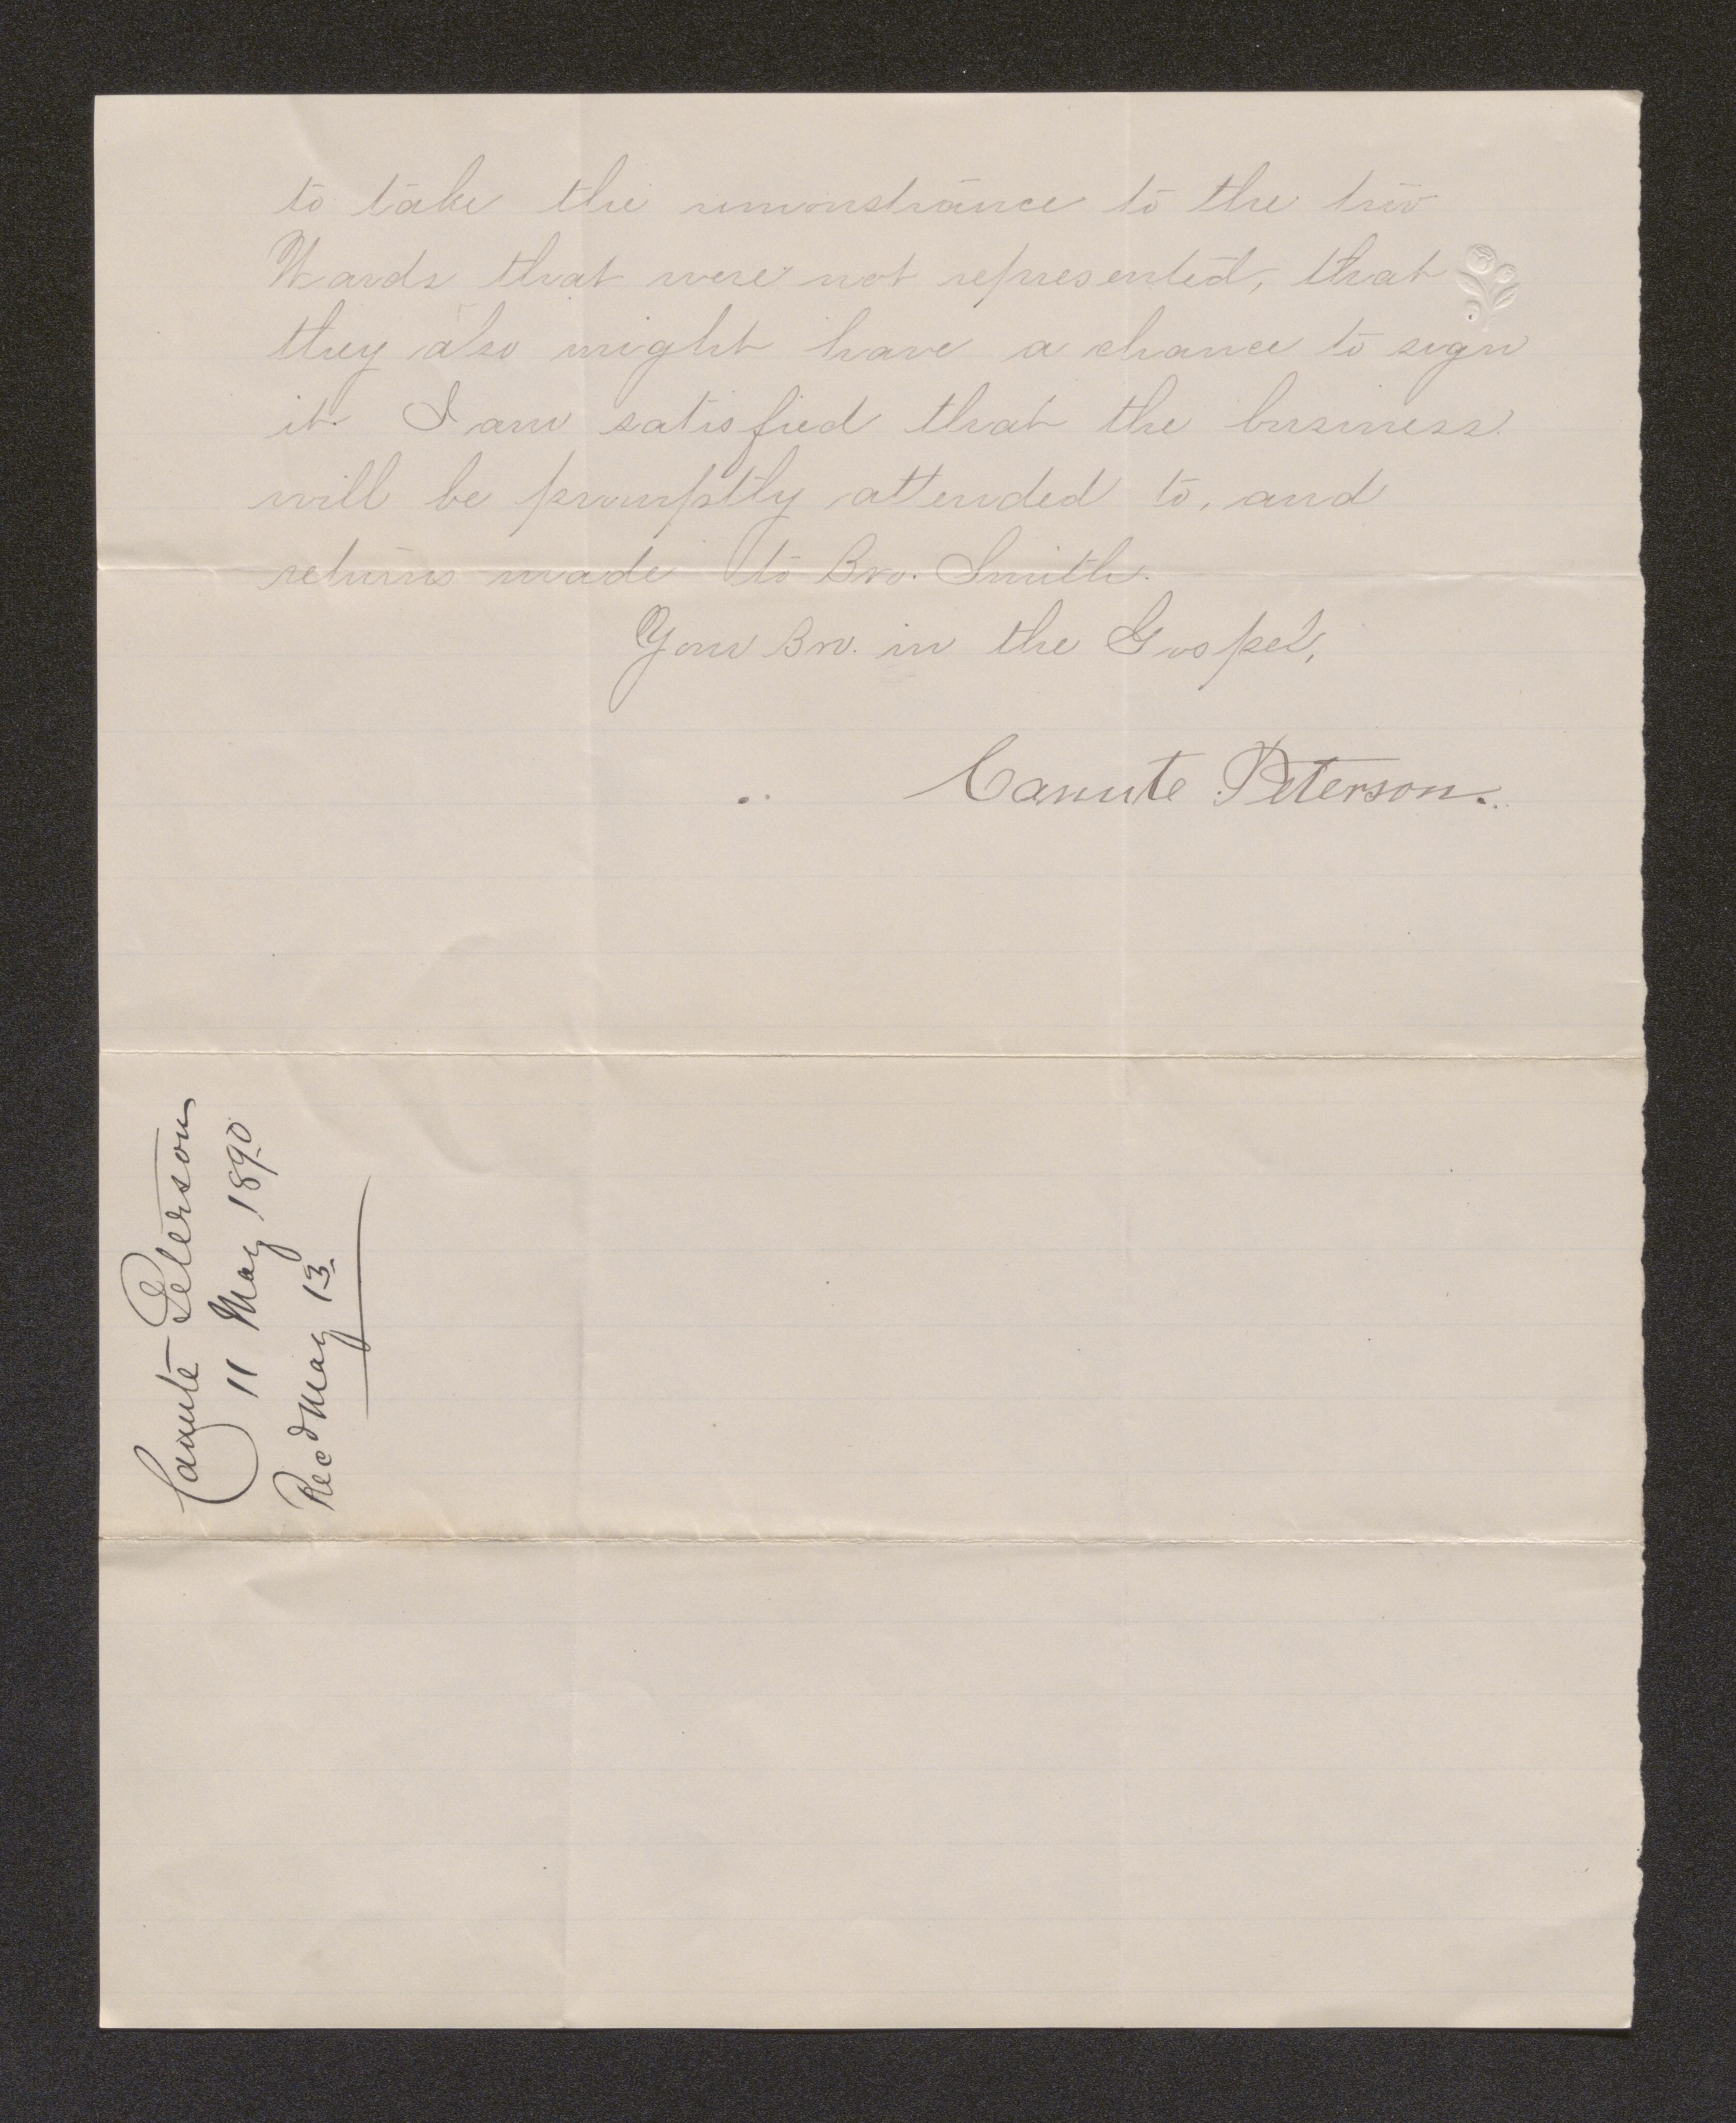 to take the remonstrance to the two
Wards that were not represented, that
they also might have a chance to sign
it. I am satisfied that the business
will be promptly attended to, and
returns made to Bro. Smith.
Your Bro. in the Gospel,
Canute Peterson.
Canute Peterson
11 May 1890
Recd May 13